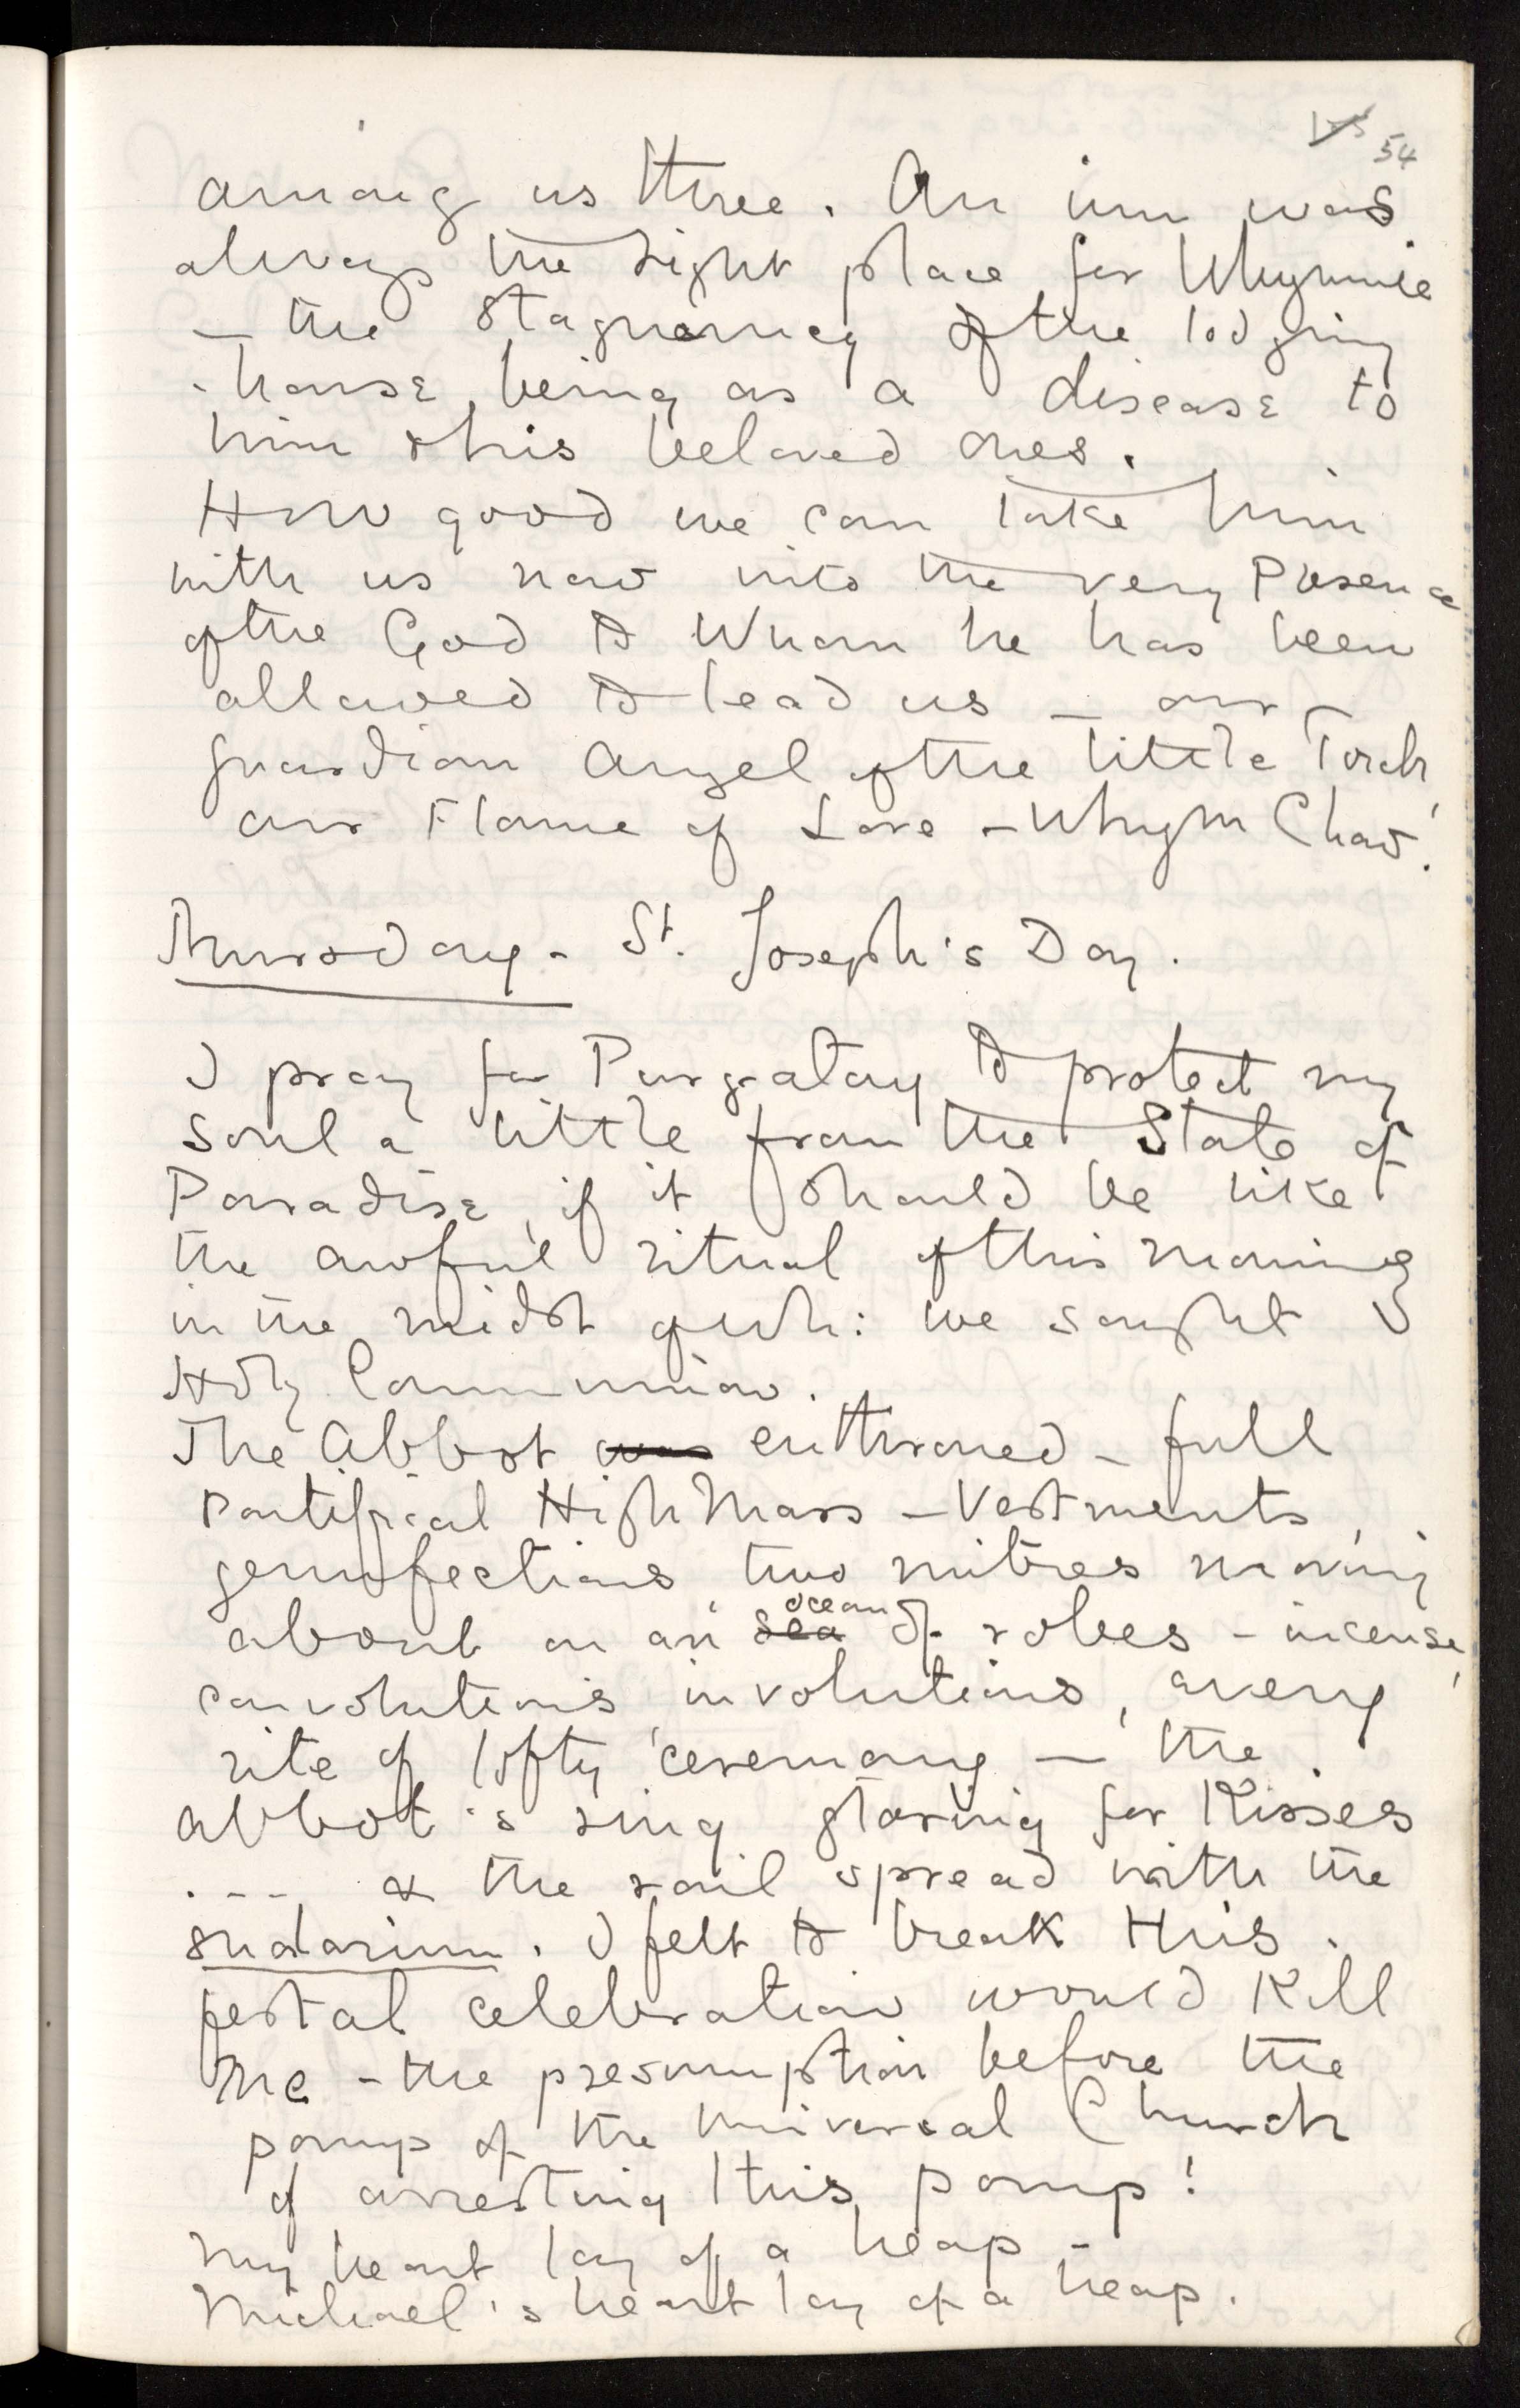 54
among us three. An inn was
always the right place for Whymmie
— the stagnancy of the lodging
-house, being as a disease to
him & his beloved ones.
How good we can take him
with us now into the very Presence
of the God to Whom he has been
allowed to lead us — our
guardian Angel of the little Torch,
our Flame of Love — Whym Chow.
Thursday - St. Joseph's Day.
I pray for Purgatory to protect my
soul a little from the State of
Paradise, if it should be like
the awful ritual of this morning
in the midst of wh: we sought
Holy Communion.
The Abbot was enthroned - full
Pontifical High Mass - Vestments,
genuflections, two mitres moving
about on an sea ocean of robes - incense,
convolutions, involutions, every
rite of lofty ceremony — the
abbot's ring staring for Kisses
.... & the rail spread with the
sudarium. I felt to break this
festal celebration would kill
me - the presumption before the
pomp of the Universal Church
of arresting this pomp!
My heart lay of a heap -
Michael's heart lay of a heap.